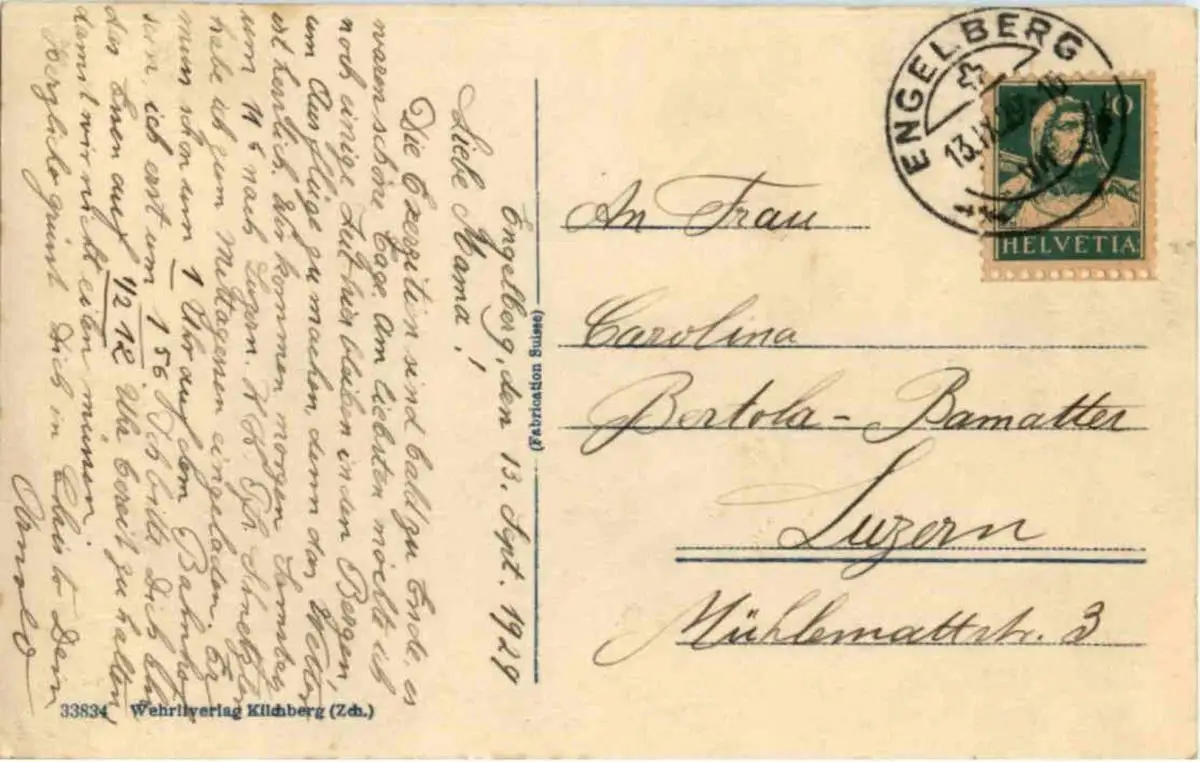 Engelberg, den 13. Sept. 1929
Liebe Mama!
Die Exerzitien sind bald zu Ende, es
waren schöne Tage. Am liebsten möchte ich
noch einige Zeit hier bleiben in den Bergen,
um Ausflüge zu machen, denn das Wetter
ist herrlich. Wir kommen morgen Samstag
um 11 nach Luzern. H. H. Schnetzler
habe ich zum Mittagessen eingeladen. Er
muss schon um 1 Uhr auf dem Bahnhof
sein, ich erst um 1 56. Ich bitte Dich also
das Essen auf 1/2 12 Uhr bereit zu halten,
damit wir nicht eilen müssen.
Herzlich grüsst Dich in Christo Dein
Arnold
(Fabrication Suisse)
ENGELBERG
13.IX.29.-16
VII
10
HELVETIA
An Frau
Carolina
Bertola-Bamatter
Luzern
Mühlemattstr. 3
33834 Wehrliverlag Kilchberg (Zch.)